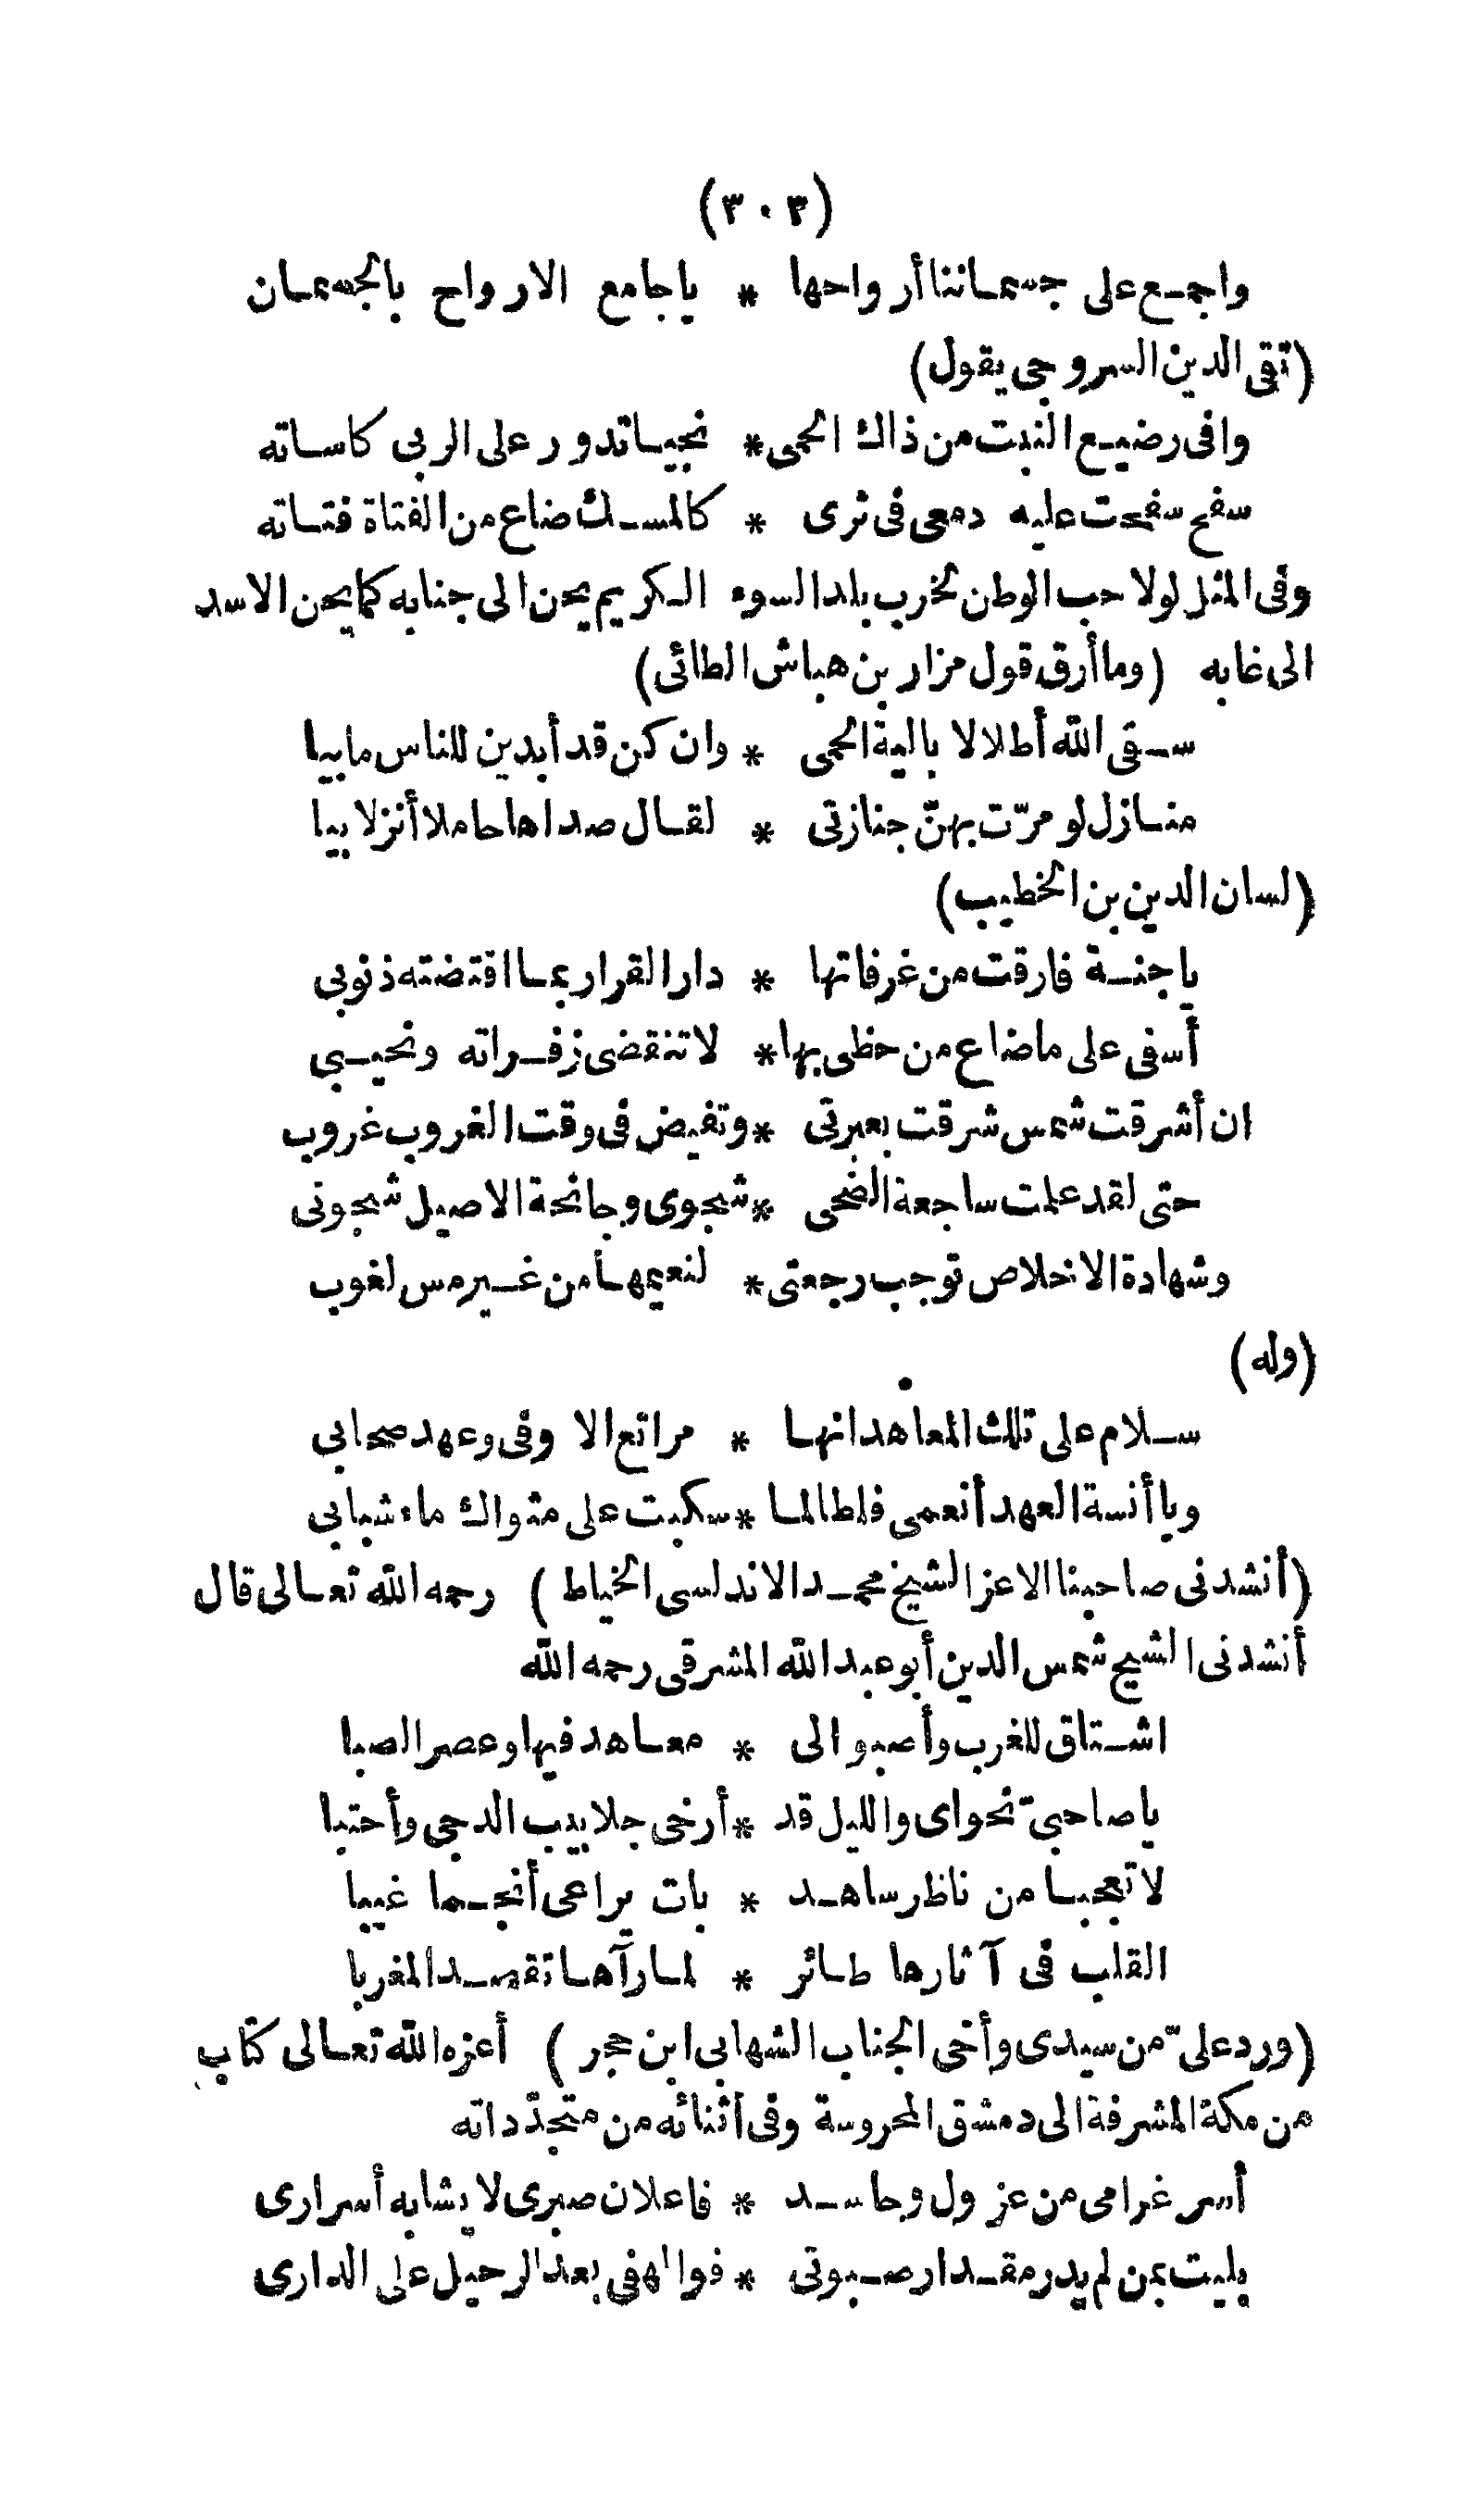 (٣٠٣)
واجمع على جسماننا أرواحها * ياجامع الارواح بالجسمان
(تقى الدين السروجى يقول)
وافى رضيع النبت من ذاك الحمى * نجيبا تدور على الربى كاساته
سفح سفحت عليه دمعى فى ثرى * كالمسك ضاع من الفتاة فتساته
وفى المثل لولا حب الوطن لخرب بلد السوء الكريم يحن الى جنابه كما يحن الاسد
الى غابه (وما أرق قول مزار بن هباش الطائى)
سقى الله أطلالا بالية الحمى * وان كن قد أبدين للناس مابيا
منازل لو مرّت بهنّ جنازتى * لقال صداها حاملا أنزلابيا
(لسان الدين بن الخطيب)
ياجنة فارقت من غرفاتها * دار القرار بما اقتضته ذنوبى
أسفى على ماضاع من حظى بها * لا تنقضى زفراته ونحيبى
ان أشرقت شمس شرقت بعبرتى * وتفيض فى وقت الغروب غروب
حتى لقد علمت ساجعة الضحى * شجوى وجانحة الاصيل شجونى
وشهادة الاخلاص توجب رجعتى * لنعيمها من غير مس لغوب
(وله)
سلام على تلك المعاهد انها * مراتع الا وفى وعهد صحابى
ويا أنسة العهد أنعمى فلطالما * سكبت على مثواك ماء شبابى
(أنشدنى صاحبنا الاعز الشيخ محمد الاندلسى الخياط) رحمه الله تعالى قال
أنشدنى الشيخ شمس الدين أبو عبد الله المشرقى رحمه الله
اشتاق للغرب وأصبو الى * معاهد فيها وعصر الصبا
ياصاحبىّ نحواى والليل قد * أرخى جلابيب الدجى وأحتبا
لا تعجبا من ناظر ساهد * بات يراعى أنجما غيبا
القلب فى آثارها طائر * لما رآها تقصد المغربا
(ورد علىّ من سيدى وأخى الجناب الشهابى ابن حجر) أعزه الله تعالى كتاب
من مكة المشرفة الى دمشق المحروسة وفى أثنائه من متجدّداته
أسر غرامى من عزول وحاسد * فاعلان صبرى لا يشابه أسرارى
بليت بمن لم يدر مقدار صبوتى * فوالهفى بعد الرحيل على الدارى